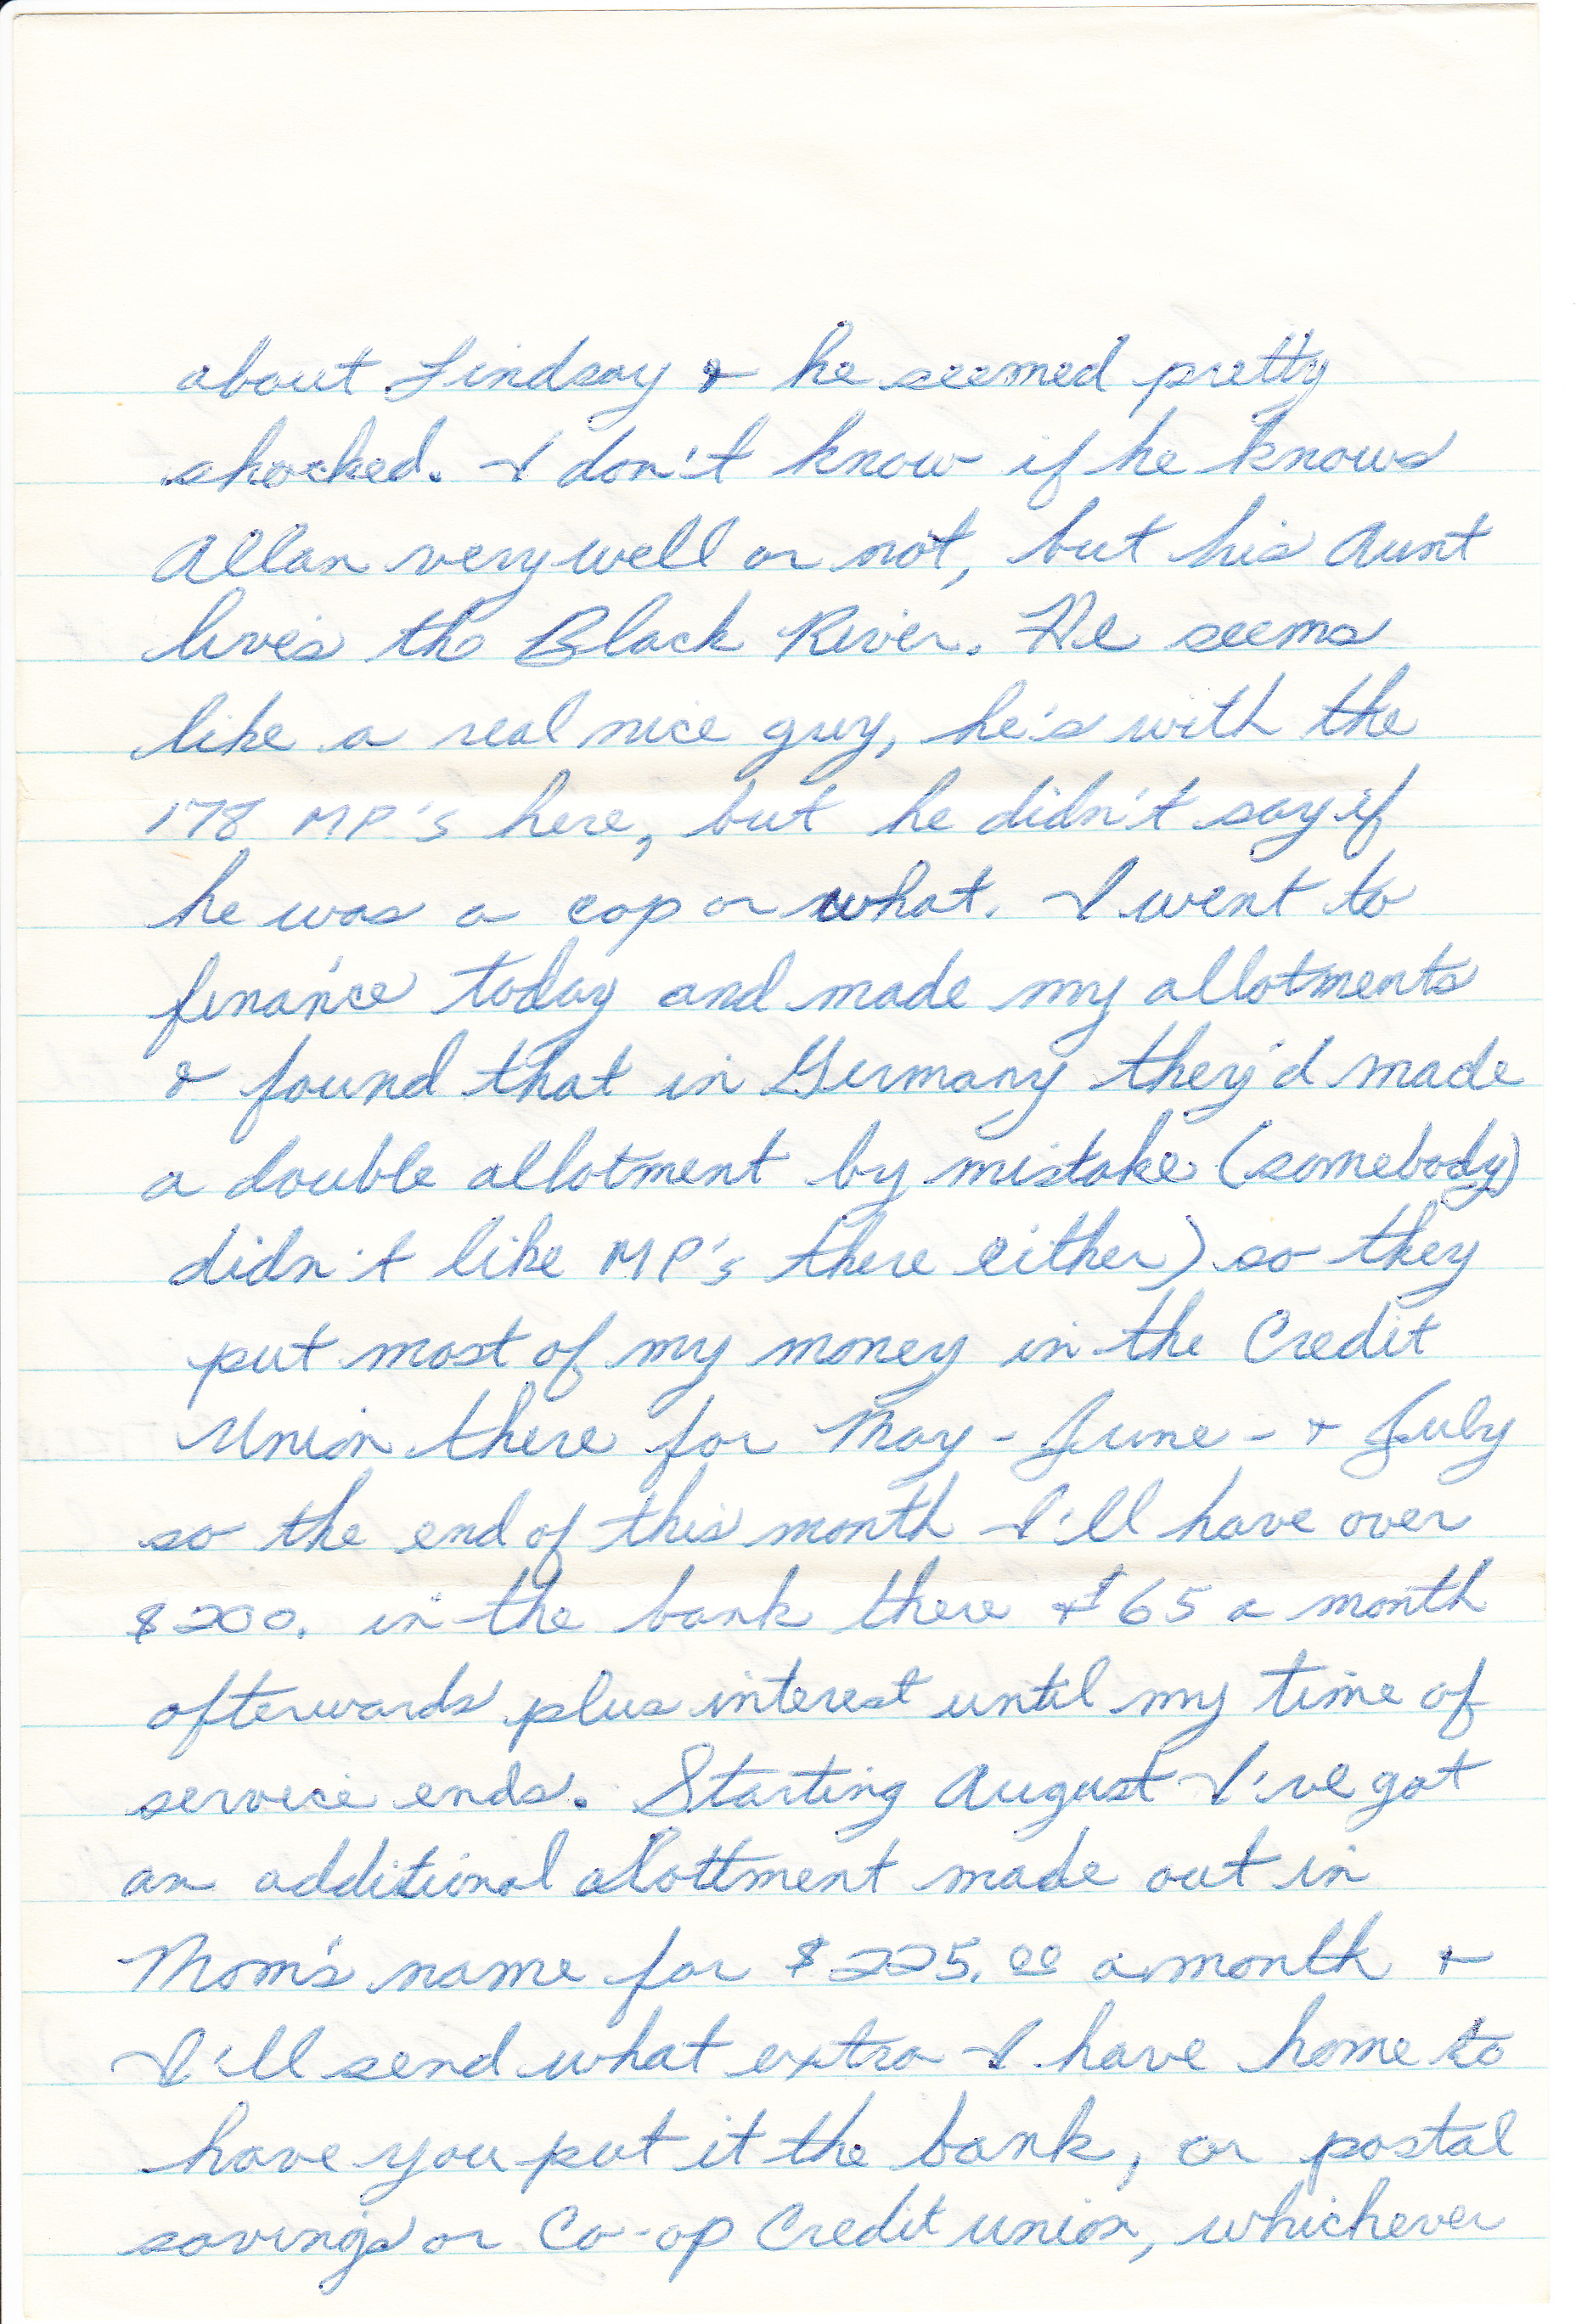 about Lindsay & he seemed pretty
shocked. I don't know if he knows
Allan very well or not, but his Aunt
live's the Black River. He seems
like a real nice guy, he's with the
178 MP's here, but he didn't say if
he was a cop or what. I went to
finance today and made my allotments
& found that in Germany they'd made
a double allotment by mistake (somebody)
didn't like MP's there either) so they
put most of my money in the Credit
Union there for May - June - & July
so the end of this month I'll have over
$200. in the bank there & $65 a month
afterwards plus interest until my time of
service ends. Starting August I've got
an additional alottment made out in
Mom's name for $225.00 a month &
I'll send what extra I have home to
have you put it the bank, or postal
savings or Co-op Credit union, whichever